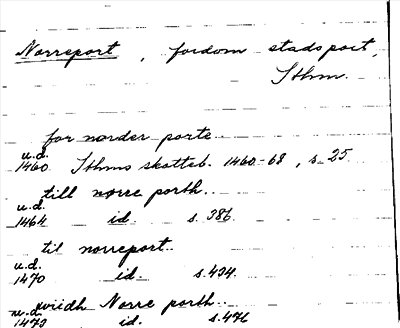 Norreport, fordom stadsport,
Sthm.
for norder porte
u.d.
1460 Sthms skatteb. 1460-68, s. 25
till norre porth.
u.d.
1464 id. s. 386.
til norreport
u.d.
1470 id. s. 434.
wiidh Norre porth.
u.d.
1473 id. s. 476